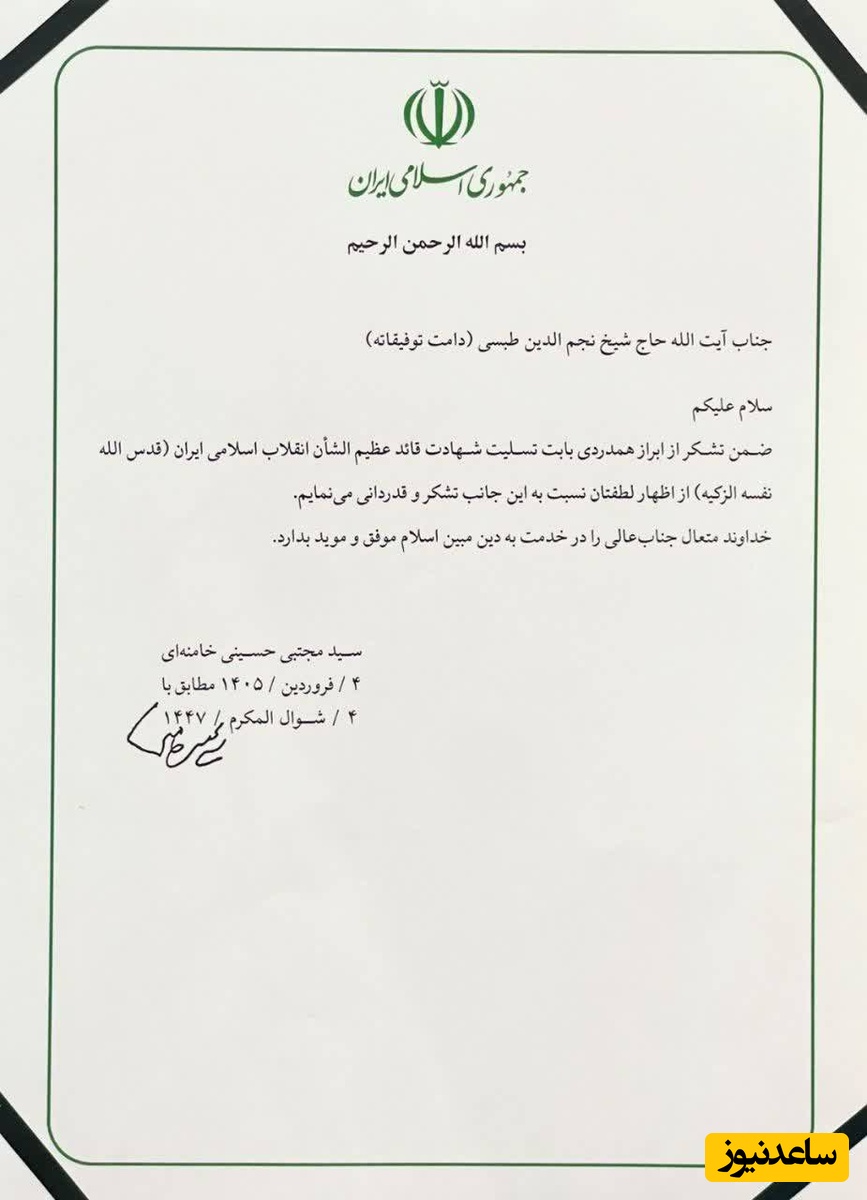 جمهوری اسلامی ایران
بسم الله الرحمن الرحیم
جناب آیت الله حاج شیخ نجم الدین طبسی (دامت توفیقاته)
سلام علیکم
ضمن تشکر از ابراز همدردی بابت تسلیت شهادت قائد عظیم الشأن انقلاب اسلامی ایران (قدس الله
نفسه الزکیه) از اظهار لطفتان نسبت به این جانب تشکر و قدردانی می‌نمایم.
خداوند متعال جناب‌عالی را در خدمت به دین مبین اسلام موفق و موید بدارد.
سید مجتبی حسینی خامنه‌ای
۴ / فروردین / ۱۴۰۵ مطابق با
۴ / شوال المکرم / ۱۴۴۷
ساعدنیوز